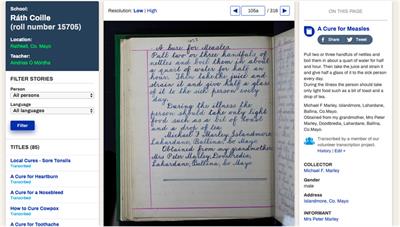 School:
Ráth Coille
(roll number 15705)
Location:
Rathkell, Co. Mayo
Teacher:
FILTER STORIES
Person
All persons
Language
All languages
Filter
TITLES (85)
Local Cures - Sore Tonsils
Transcribed
A Cure for Heartburn
Transcribed
A Cure for a Nosebleed
Transcribed
How to Cure Cowpox
Transcribed
A Cure for Toothache
Resolution: Low | High
105a
/ 316
A Cure for Measles
Pull two or three handfuls of
nettles and boil them in about
a quart of water for half and
hour. Then take the juice and
strain it and give half a glass
of it to the sick person every
day.
During the illness the
person should take only light
food such as a bit of toast
and a drop of tea.
Michael F Marley, Islandmore,
Lahardane, Ballina, Co Mayo
Obtained from my grandmother,
Mrs Peter Marley, Dooldredia,
Lahardane, Ballina, Co Mayo
ON THIS PAGE
A Cure for Measles
Share
Tweet
Pull two or three handfuls of nettles and
boil them in about a quart of water for half
and hour. Then take the juice and strain it
and give half a glass of it to the sick person
every day.
During the illness the person should take
only light food such as a bit of toast and a
drop of tea.
Michael F Marley, Islandmore, Lahardane,
Ballina, Co. Mayo
Obtained from my grandmother, Mrs Peter
Marley, Dooldredia, Lahardane, Ballina,
Co.Mayo
Transcribed by a member of our
volunteer transcription project.
History | Edit
COLLECTOR
Michael F. Marley
Gender
male
Address
Islandmore, Co. Mayo
INFORMANT
Mrs Peter Marley